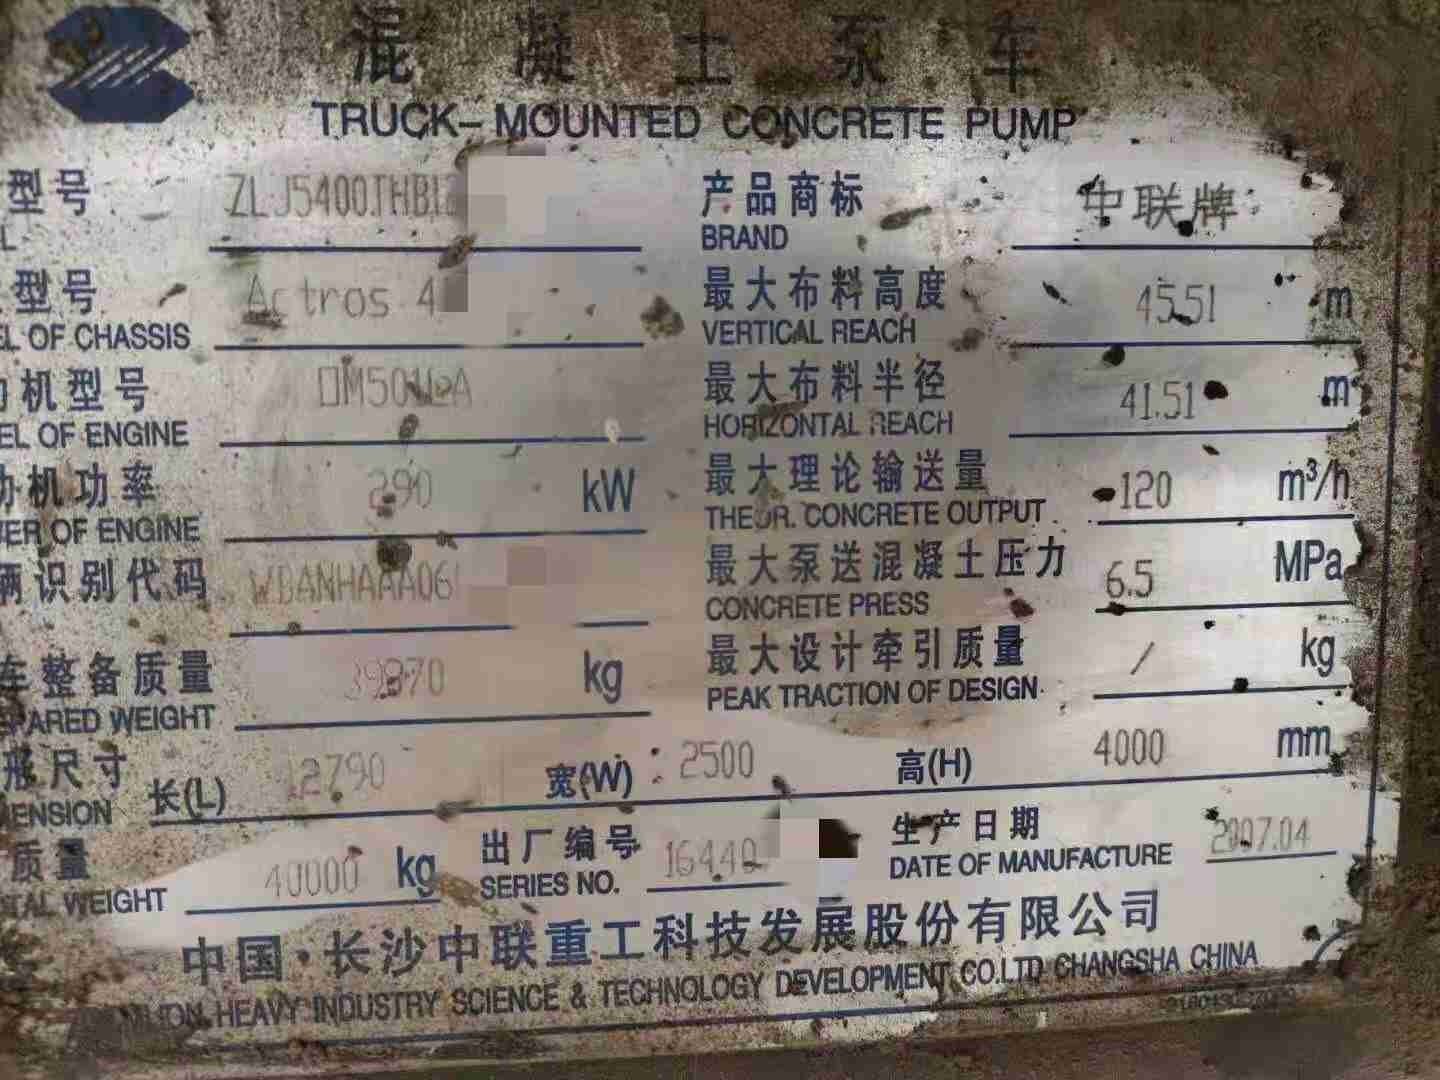 混凝土泵车
TRUCK-MOUNTED CONCRETE PUMP
型号 ZLJ5400THB 产品商标 中联牌
BRAND
型号 Actros 4 最大布料高度 45.51 m
OF CHASSIS VERTICAL REACH
机型号 OM501LA 最大布料半径 41.51 m
OF ENGINE HORIZONTAL REACH
机功率 290 kW 最大理论输送量 120 m³/h
OF ENGINE THEOR. CONCRETE OUTPUT
识别代码 WDANHAAA06 最大泵送混凝土压力 6.5 MPa
CONCRETE PRESS
车整备质量 39870 kg 最大设计牵引质量 / kg
WEIGHT PEAK TRACTION OF DESIGN
形尺寸 长(L) 12790 宽(W) : 2500 高(H) 4000 mm
质量 40000 kg 出厂编号 16440 生产日期 2007.04
WEIGHT SERIES NO. DATE OF MANUFACTURE
中国·长沙中联重工科技发展股份有限公司
HEAVY INDUSTRY SCIENCE & TECHNOLOGY DEVELOPMENT CO.LTD CHANGSHA CHINA